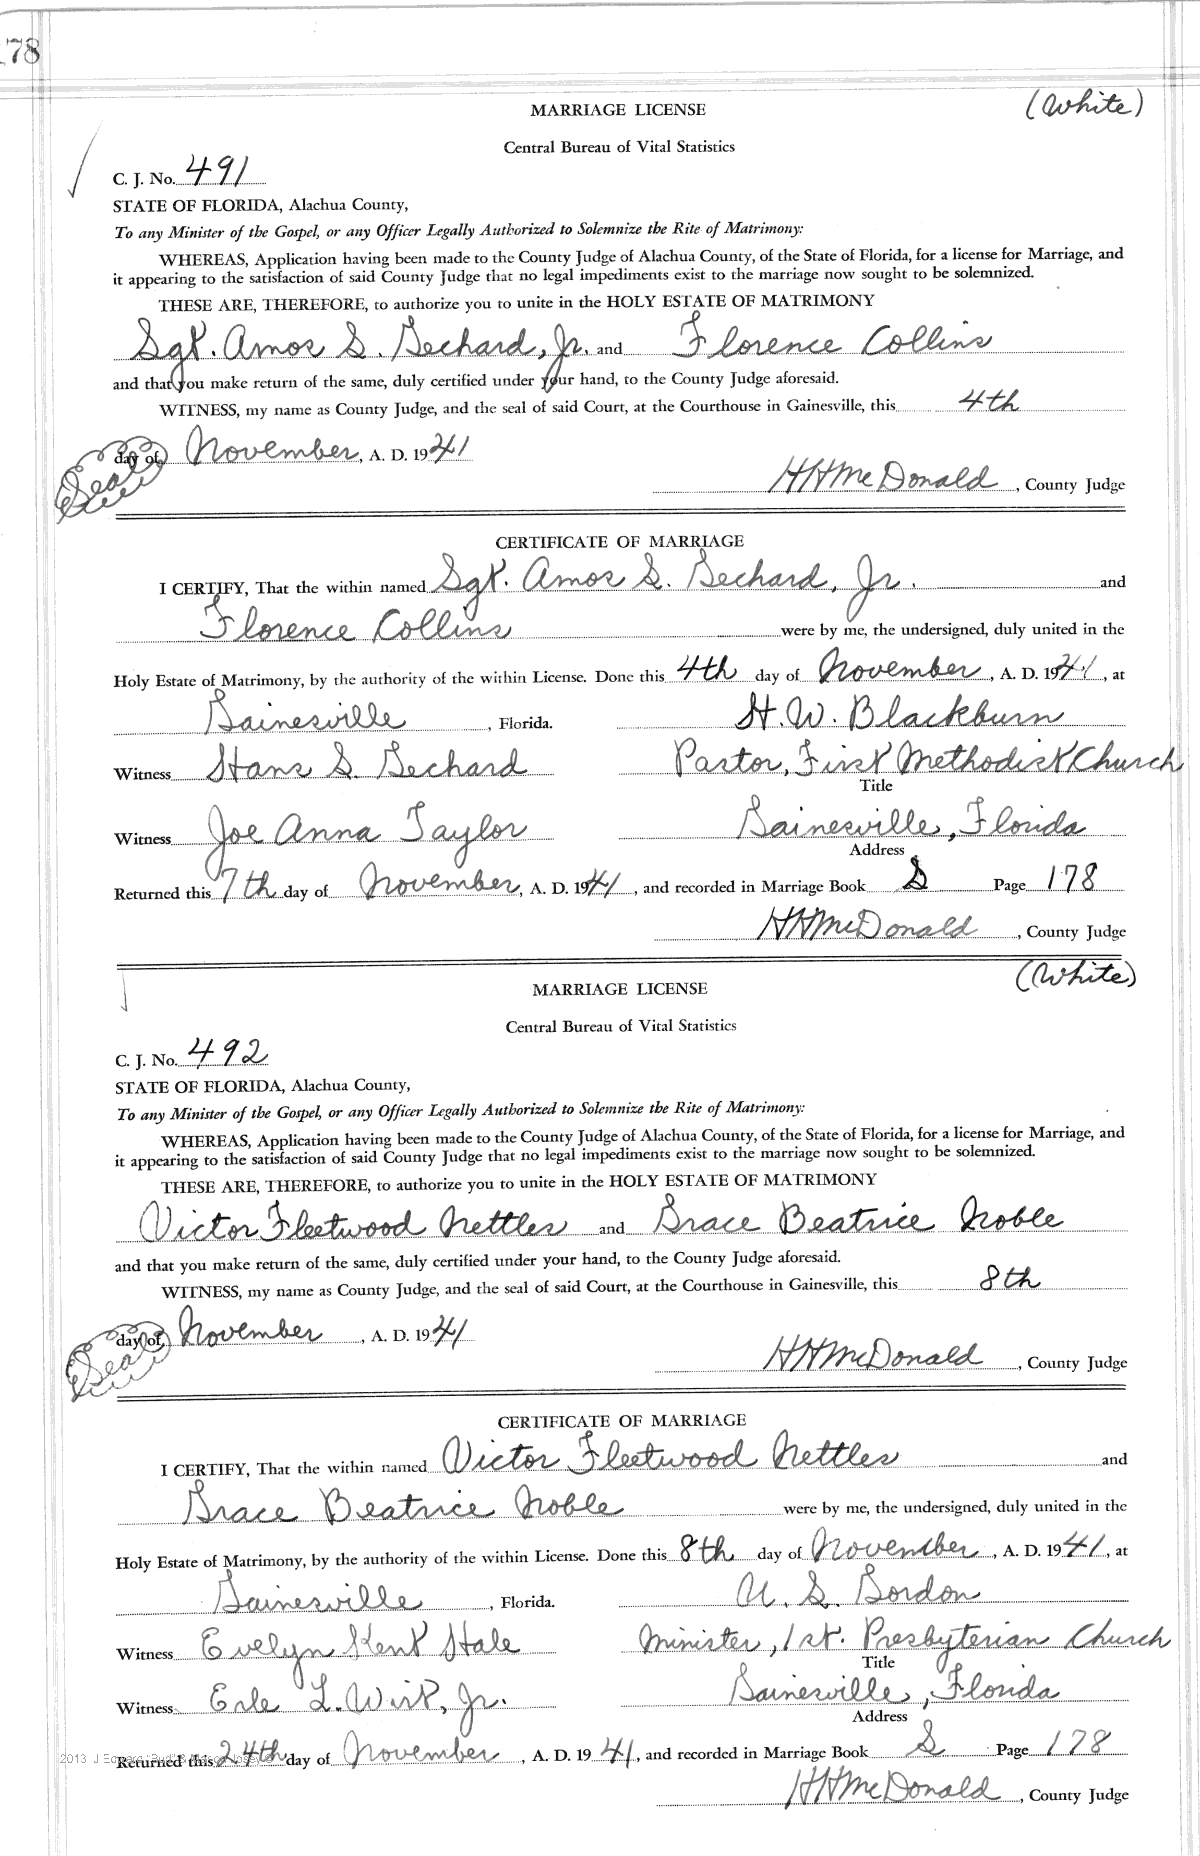 178
MARRIAGE LICENSE (White)
Central Bureau of Vital Statistics
C. J. No. 491
STATE OF FLORIDA, Alachua County,
To any Minister of the Gospel, or any Officer Legally Authorized to Solemnize the Rite of Matrimony:
WHEREAS, Application having been made to the County Judge of Alachua County, of the State of Florida, for a license for Marriage, and
it appearing to the satisfaction of said County Judge that no legal impediments exist to the marriage now sought to be solemnized.
THESE ARE, THEREFORE, to authorize you to unite in the HOLY ESTATE OF MATRIMONY
Sgt. Amos S. Gechard, Jr. and Florence Collins
and that you make return of the same, duly certified under your hand, to the County Judge aforesaid.
WITNESS, my name as County Judge, and the seal of said Court, at the Courthouse in Gainesville, this 4th
day of November, A. D. 1941
Seal
HHMcDonald, County Judge
CERTIFICATE OF MARRIAGE
I CERTIFY, That the within named Sgt. Amos S. Gechard, Jr. and
Florence Collins were by me, the undersigned, duly united in the
Holy Estate of Matrimony, by the authority of the within License. Done this 4th day of November, A. D. 1941, at
Gainesville, Florida. H. W. Blackburn
Witness Hans S. Gechard Pastor, First Methodist Church
Title
Witness Joe Anna Taylor Gainesville, Florida
Address
Returned this 7th day of November, A. D. 1941, and recorded in Marriage Book S Page 178
HHMcDonald, County Judge
(White)
MARRIAGE LICENSE
Central Bureau of Vital Statistics
C. J. No. 492
STATE OF FLORIDA, Alachua County,
To any Minister of the Gospel, or any Officer Legally Authorized to Solemnize the Rite of Matrimony:
WHEREAS, Application having been made to the County Judge of Alachua County, of the State of Florida, for a license for Marriage, and
it appearing to the satisfaction of said County Judge that no legal impediments exist to the marriage now sought to be solemnized.
THESE ARE, THEREFORE, to authorize you to unite in the HOLY ESTATE OF MATRIMONY
Victor Fleetwood Nettles and Grace Beatrice Noble
and that you make return of the same, duly certified under your hand, to the County Judge aforesaid.
WITNESS, my name as County Judge, and the seal of said Court, at the Courthouse in Gainesville, this 8th
day of November, A. D. 1941
Seal
HHMcDonald, County Judge
CERTIFICATE OF MARRIAGE
I CERTIFY, That the within named Victor Fleetwood Nettles and
Grace Beatrice Noble were by me, the undersigned, duly united in the
Holy Estate of Matrimony, by the authority of the within License. Done this 8th day of November, A. D. 1941, at
Gainesville, Florida. U. S. Gordon
Witness Evelyn Kent Hale Minister, 1st. Presbyterian Church
Title
Witness Erle L. Wirt, Jr. Gainesville, Florida
Address
2013 J
Returned this 24th day of November, A. D. 1941, and recorded in Marriage Book S Page 178
HHMcDonald, County Judge